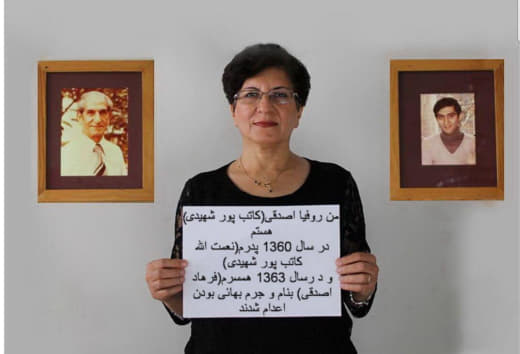 من روفیا اصدقی(کاتب پور شهیدی)
هستم
در سال 1360 پدرم(نعمت الله
کاتب پور شهیدی)
و د رسال 1363 همسرم(فرهاد
اصدقی) بنام و جرم بهائی بودن
اعدام شدند